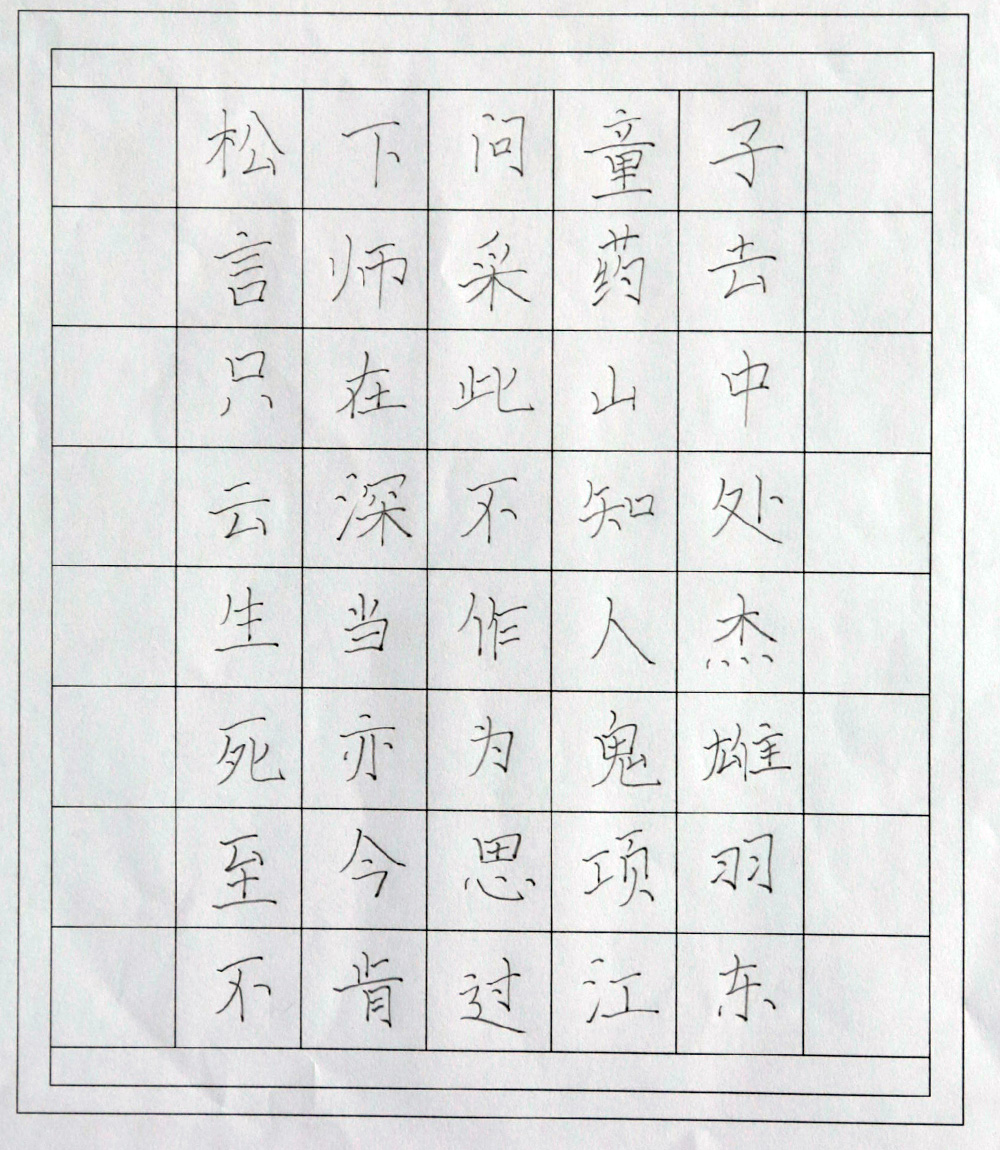 松下问童子
言师采药去
只在此山中
云深不知处
生当作人杰
死亦为鬼雄
至今思项羽
不肯过江东